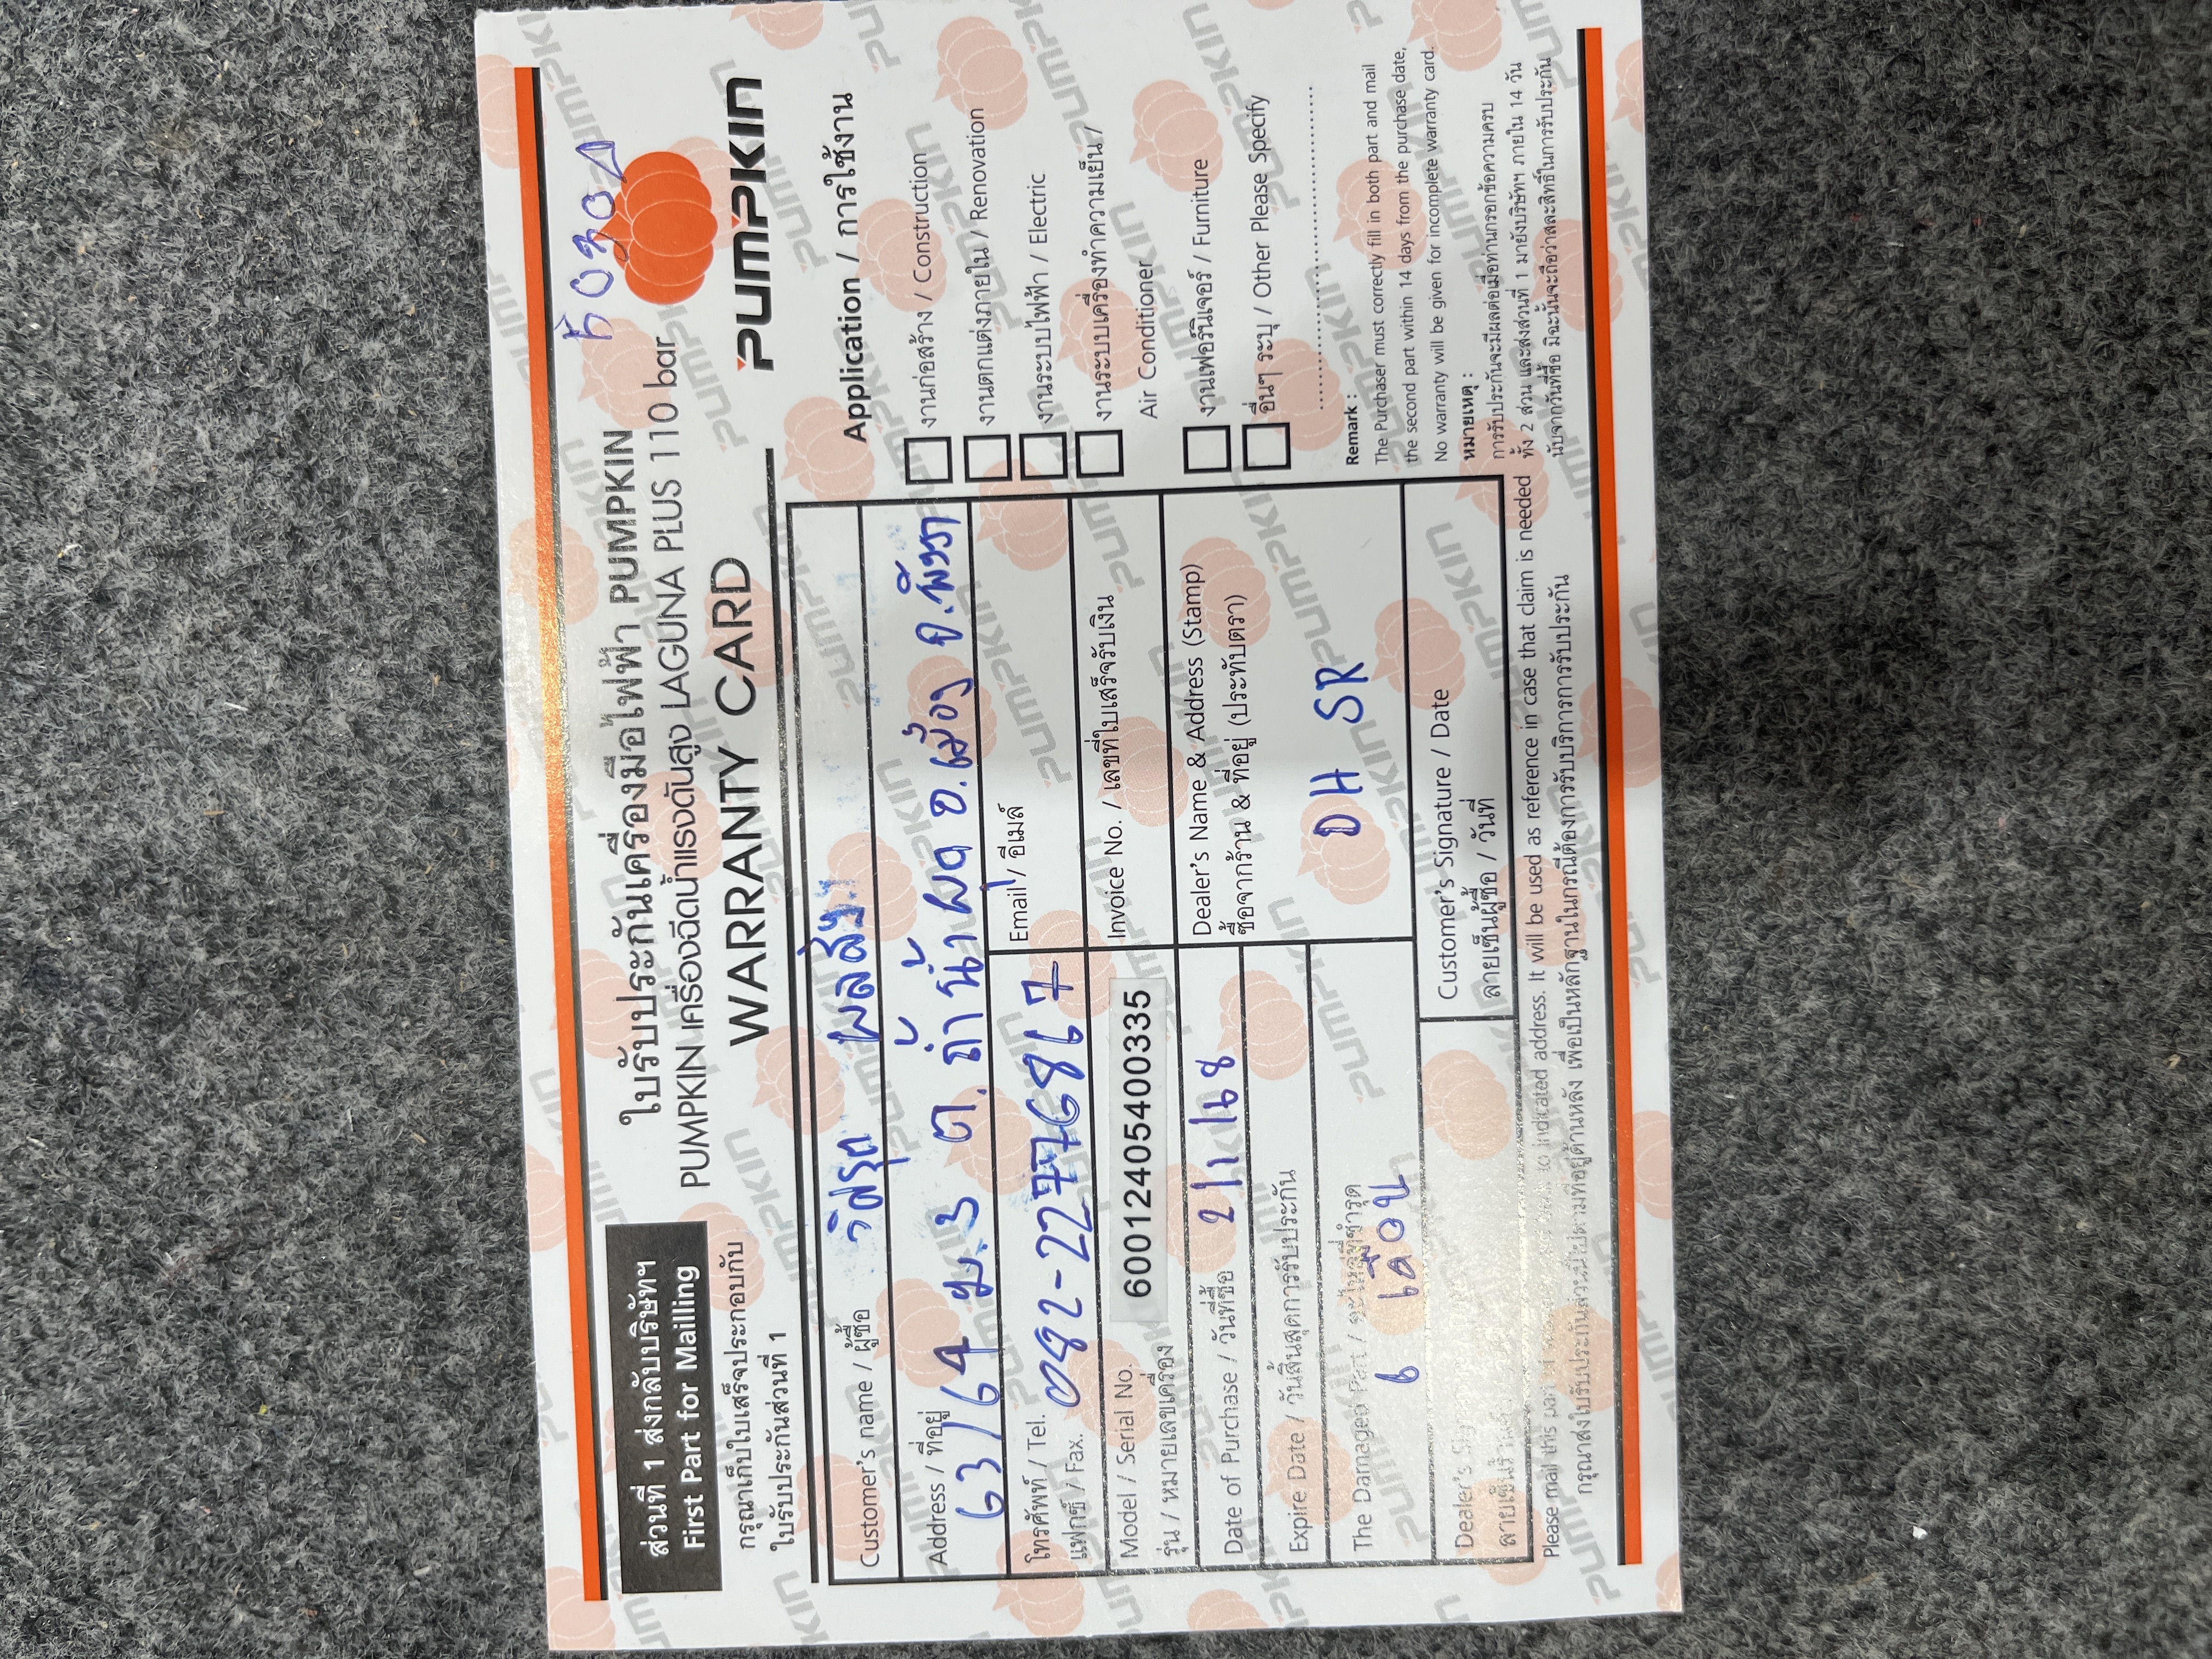 ส่วนที่ 1 ส่งกลับบริษัทฯ
First Part for Mailling
กรุณาเก็บใบเสร็จประกอบกับ
ใบรับประกันส่วนที่ 1
ใบรับประกันเครื่องมือไฟฟ้า PUMPKIN
PUMPKIN เครื่องฉีดน้ำแรงดันสูง LAGUNA PLUS 110 bar
WARRANTY CARD
PUMPKIN
Customer's name / ผู้ซื้อ
Address / ที่อยู่
63/64 ม.3 ต.ถ้ำน้ำผุด อ.เมือง จ.พังงา
โทรศัพท์ / Tel. 082-2277686 7
แฟกซ์ / Fax.
Email / อีเมล์
Model / Serial No.
รุ่น / หมายเลขเครื่อง
60012405400335
Invoice No. / เลขที่ใบเสร็จรับเงิน
Date of Purchase / วันที่ซื้อ 2/1/68
Expire Date / วันสิ้นสุดการรับประกัน
The Damaged Part / อะไหล่ที่ชำรุด
6 เดือน
Dealer's Name & Address (Stamp)
ซื้อจากร้าน & ที่อยู่ (ประทับตรา)
DH SR
Dealer's
Customer's Signature / Date
ลายเซ็นผู้ซื้อ / วันที่
Application / การใช้งาน
งานก่อสร้าง / Construction
งานตกแต่งภายใน / Renovation
งานระบบไฟฟ้า / Electric
งานระบบเครื่องทำความเย็น /
Air Conditioner
งานเฟอร์นิเจอร์ / Furniture
อื่นๆ ระบุ / Other Please Specify
Remark :
The Purchaser must correctly fill in both part and mail
the second part within 14 days from the purchase date,
No warranty will be given for incomplete warranty card.
หมายเหตุ :
การรับประกันจะมีผลต่อเมื่อท่านกรอกข้อความครบ
ทั้ง 2 ส่วน และส่งส่วนที่ 1 มายังบริษัทฯ ภายใน 14 วัน
นับจากวันที่ซื้อ มิฉะนั้นจะถือว่าสละสิทธิ์ในการรับประกัน
Please mail this part to indicated address. It will be used as reference in case that claim is needed
กรุณาส่งใบรับประกันส่วนนี้ไปตามที่อยู่ด้านหลัง เพื่อเป็นหลักฐานในกรณีต้องการรับบริการการรับประกัน